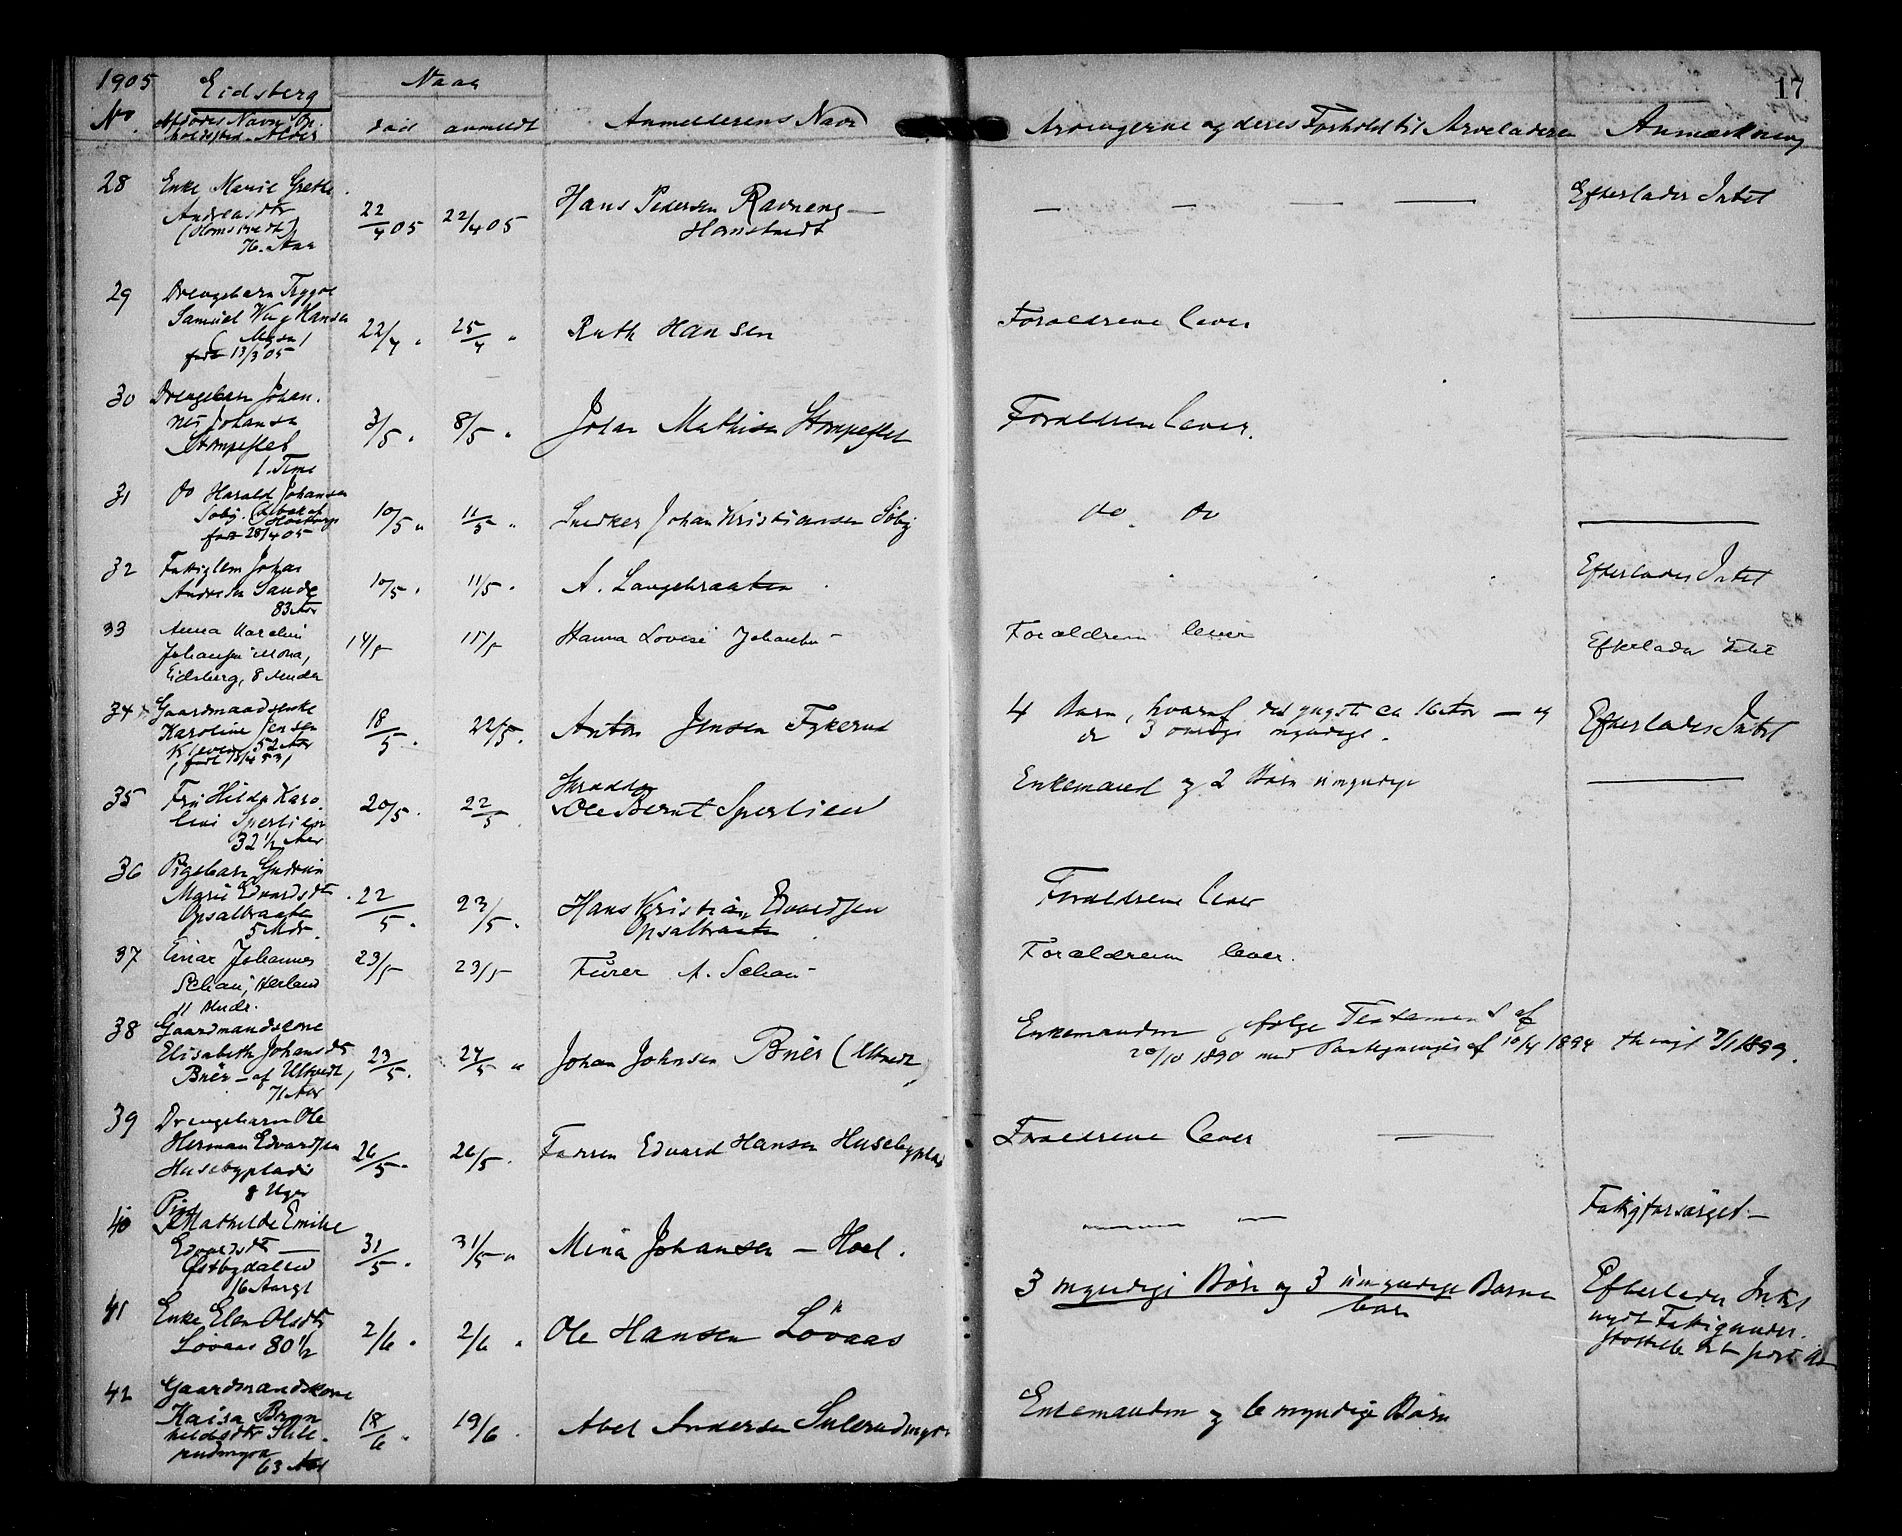 1905 Eidsberg Naar 17
No Afdødes Navn, Op- død anmeldt Anmelderens Navn Arvingerne og deres Forhold til Arveladeren Anmærkning
holdssted, Alder
28 Enke Marie Grethe Hans Pedersen Ravneng — Efterlader Intet
Andreasdtr 22/4 05 22/4 05 Homstvedt — — — —
(Homstvedt)
76 Aar
29 Drengebarn Trygve
Samuel Hansen 22/4 " 25/4 " Ruth Hansen Forældrene lever —
(Mysen)
født 13/3 05
30 Drengebarn Johan-
nes Johansen 3/5 " 8/5 " Johan Mathisen Forældrene lever. —
1 Time
31 do Harald Johansen
Søby. 10/5 " 11/5 " Snedker Johan Kristiansen Søby do do —
født 28/4 05
32 Fattiglem Johan Efterlader Intet
Andersen Sande 10/5 " 11/5 " A. Langebraaten
83 Aar
33 Anna Karoline 14/5 15/5 Hanna Lovise Johansen Forældrene lever Efterlader Intet
Johansen Mona,
Eidsberg, 8 Mndr
34 Gaardmandsenke 4 Børn, hvoraf det yngste ca 16 Aar — og
Karoline Jensen 18/5 " 22/5 " Anton Jensen Fykerud de 3 øvrige myndige. Efterlader Intet
Kleven, 52 Aar
(født 18/4 53)
35 Fru Hilda Karo- Skrædder Enkemand og 2 Børn umyndige —
line Sperlien 20/5 " 22/5 " Ole Bernt Sperlien
32 1/2 Aar
36 Pigebarn Gudrun
Marie Edvardsdtr 22/5 " 23/5 " Hans Kristian Edvardsen Forældrene lever
Opsalbraaten Opsalbraaten
5 Mdr.
37 Einar Johannes 23/5 23/5 Furer A. Forældrene lever.
11 Mndr.
38 Gaardmandskone Enkemanden ifølge Testament af
Elisabeth Johansdtr 23/5 " 24/5 " Johan Johnsen Buer 20/10 1890 med Paategninger af 10/4 1894 thingl 7/1 1899.
Buer — af
71 Aar
39 Drengebarn Ole
Herman Edvardsen 26/5 " 26/5 " Faderen Edvard Hansen Husebyplads Forældrene lever —
Husebypladsen
8 Uger
40 Pige Fattigforsørget —
Mathilde Emilie 31/5 " 31/5 " Mina Johansen — Hoel. — —
Edvardsdtr —
Østbydalen
16 Aargl
41 Enke Elen Olsdtr 3 myndige Børn og 3 umyndige Barne- Efterlader Intet
Løvaas 80 1/2 2/6 " 2/6 " Ole Hansen Løvaas barn nydt Fattigunder-
støttelse
42 Gaardmandskone
Kaisa Bryn- 18/6 " 19/6 " Abel Andersen Enkemanden og 6 myndige Børn
hildsdtr
63 Aar